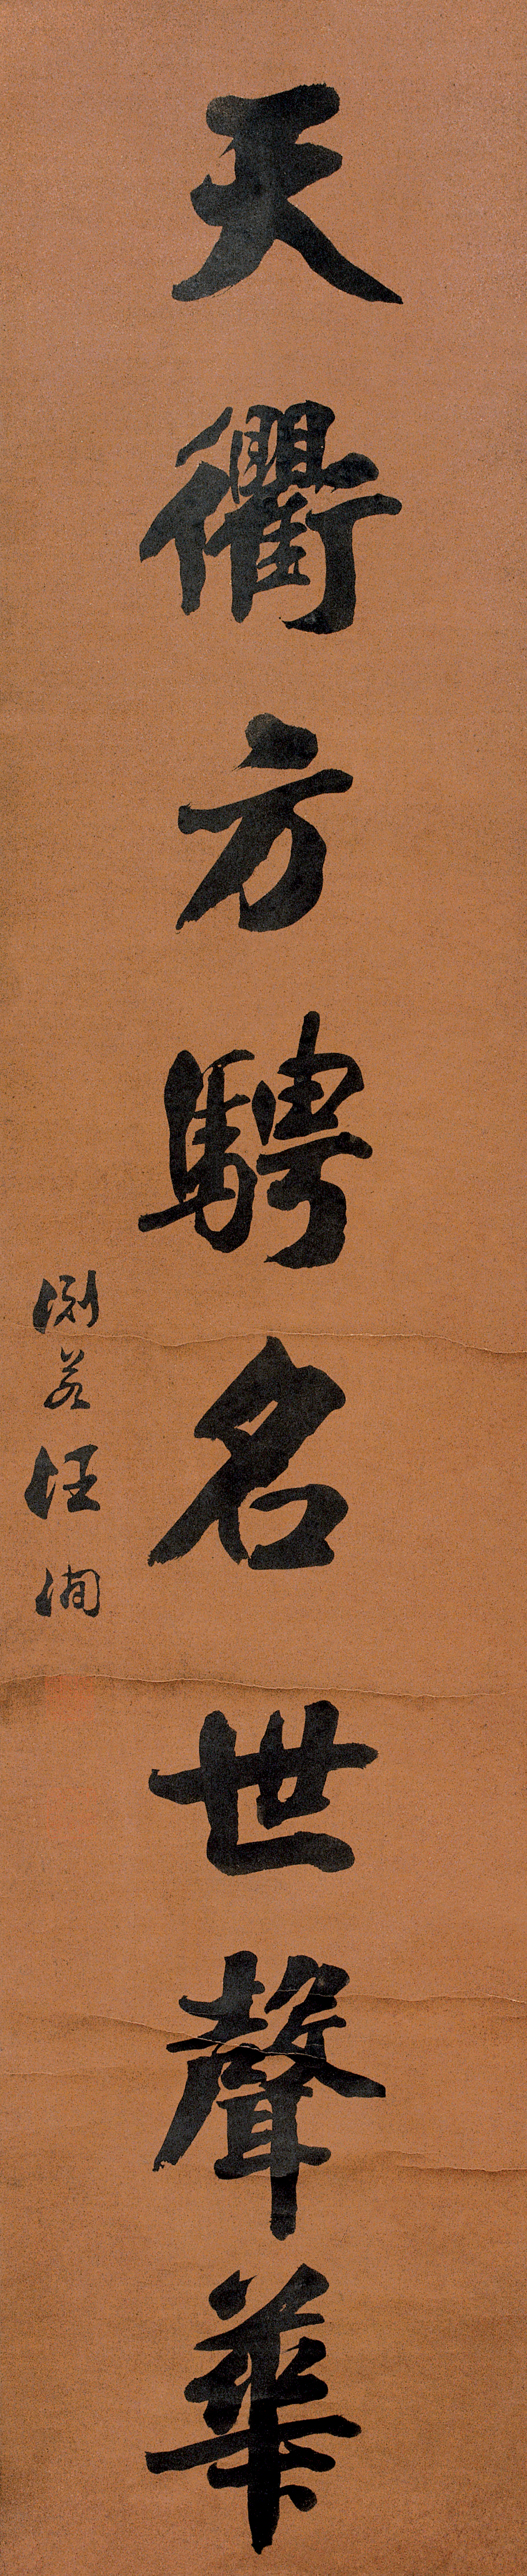 天衢方騁名世聲華
淵若汪洵